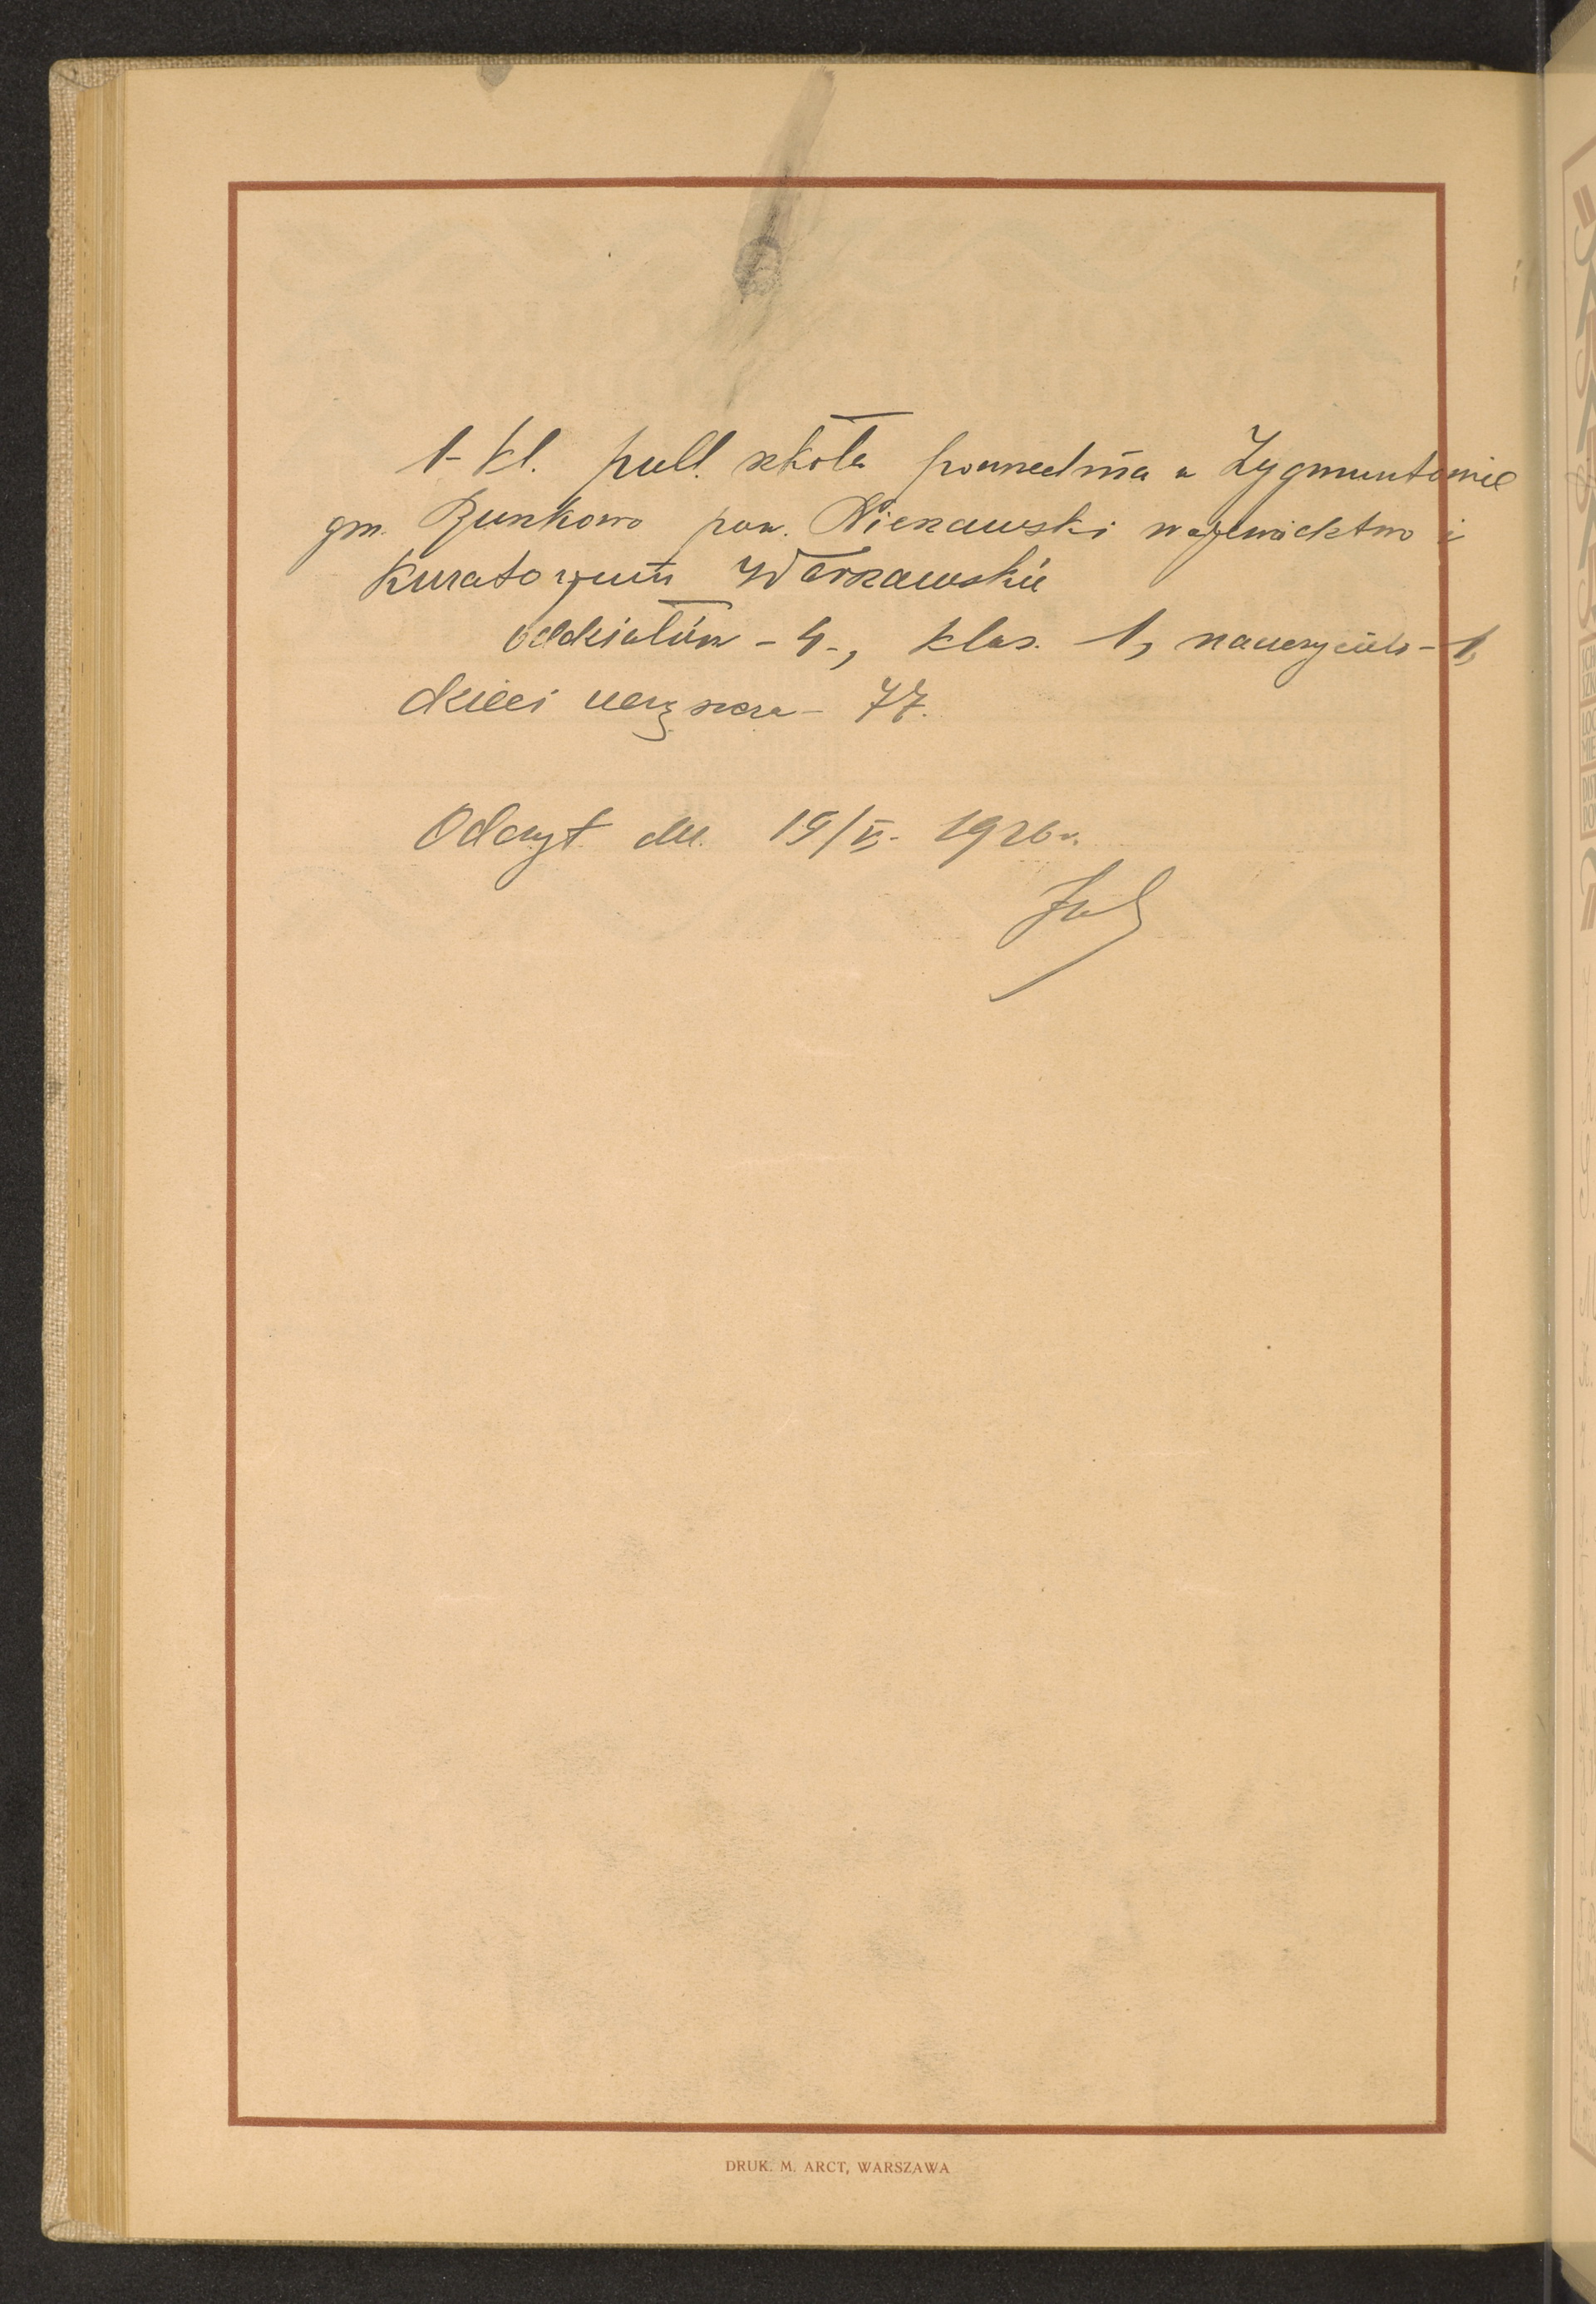 1-kl. publ. szkoła powszechna w Zygmuntowie
gm. pow. Nieszawski województwo i
Kuratorjum Warszawskie
oddziałów - 4-, klas. 1, nauczycieli - 1,
dzieci uczęszcza - 77.
Odczyt dn. 19/V. 1926 r.
DRUK. M. ARCT, WARSZAWA